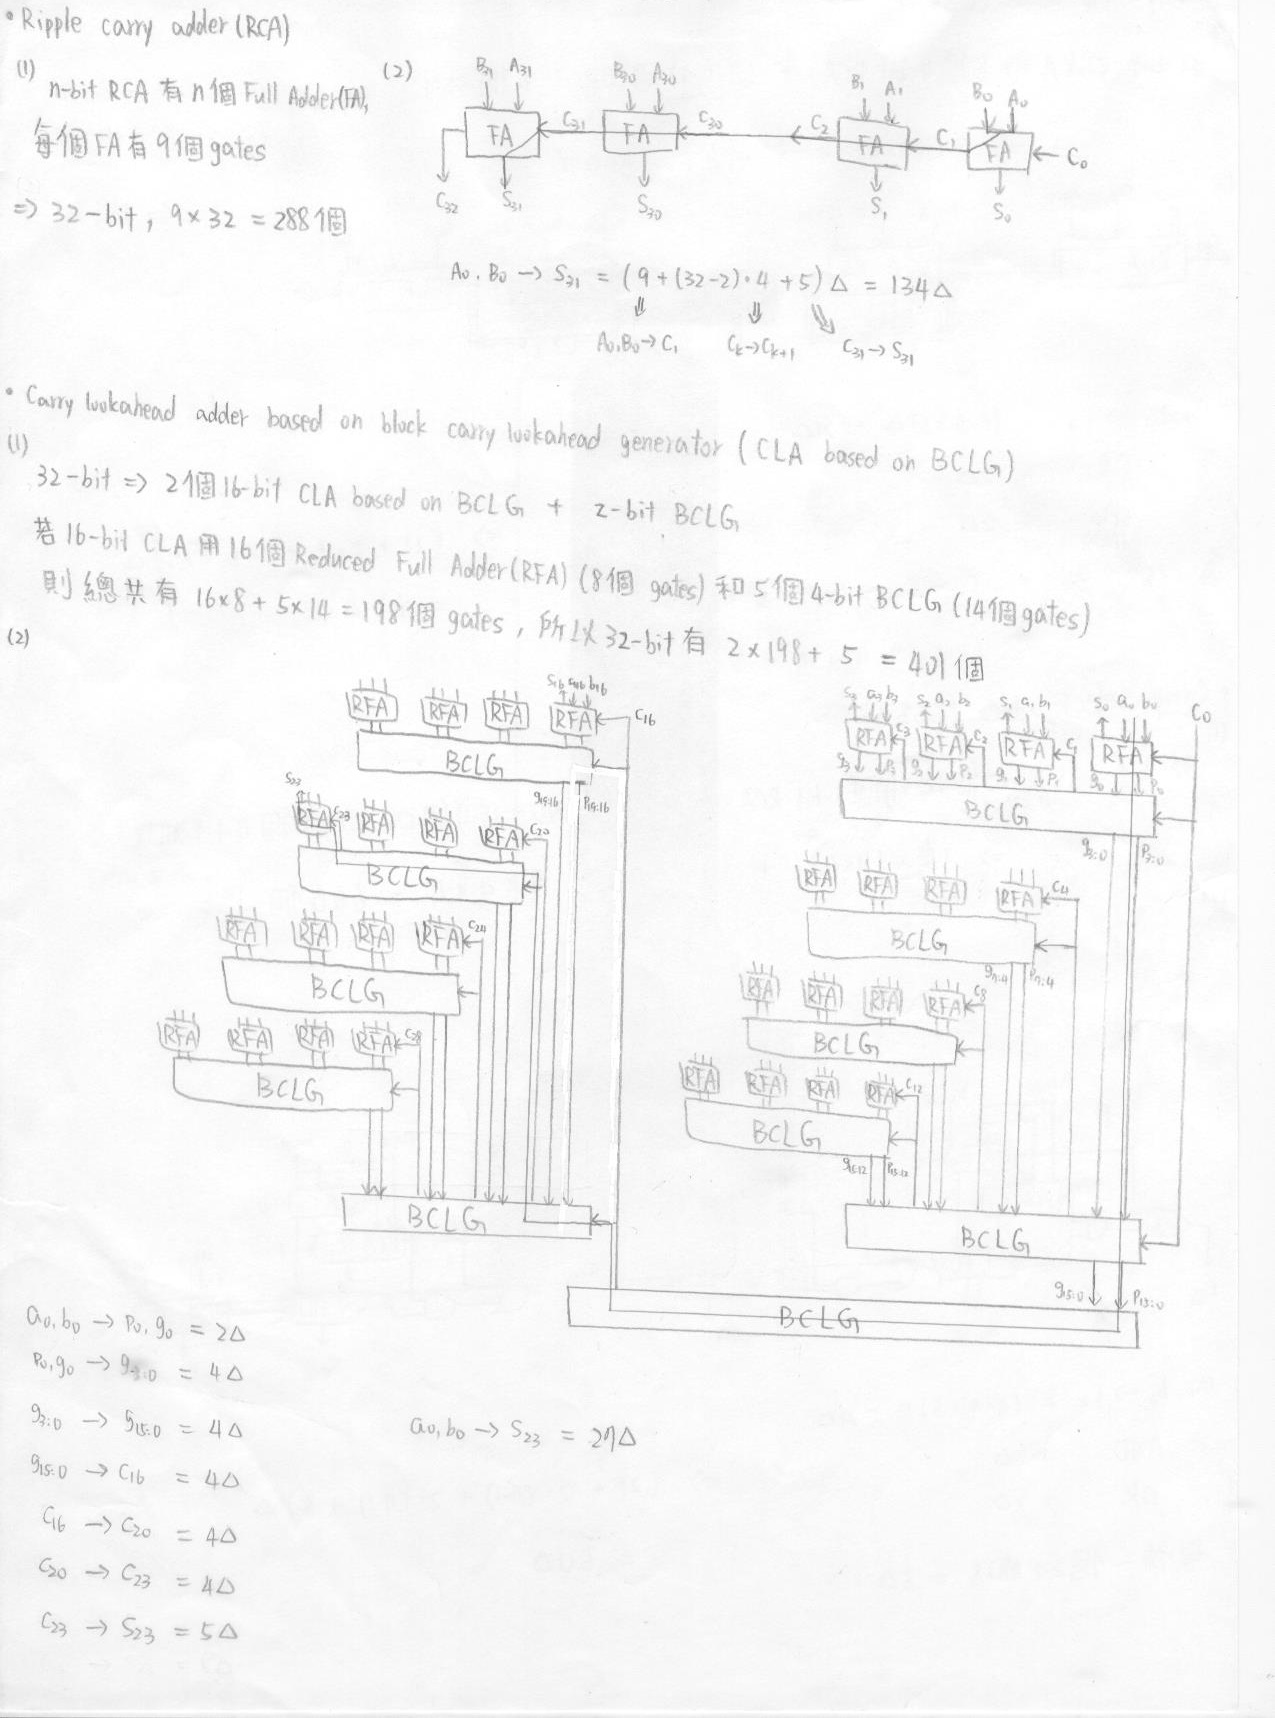 • Ripple carry adder (RCA)
(1) n-bit RCA 有 n個 Full Adder(FA),
每個 FA 有 9個 gates
=> 32-bit, 9×32 = 288個
(2)
B31 A31 B30 A30 B1 A1 B0 A0
FA C31 FA C30 C2 FA C1 FA C0
C32 S31 S30 S1 S0
A0,B0 → S31 = (9+(32-2)·4+5)Δ = 134Δ
A0,B0→C1 Ck→Ck+1 C31→S31
• Carry lookahead adder based on block carry lookahead generator (CLA based on BCLG)
(1)
32-bit => 2個16-bit CLA based on BCLG + 2-bit BCLG
若16-bit CLA 用16個 Reduced Full Adder(RFA) (8個 gates) 和 5個4-bit BCLG (14個gates)
則總共有 16×8+5×14=198個 gates, 所以32-bit有 2×198+5 = 401個
(2)
S16 a16 b16
RFA RFA RFA RFA C16
BCLG
g19:16 P19:16
S23
RFA C23 RFA RFA RFA C20
BCLG
RFA RFA RFA RFA C24
BCLG
RFA RFA RFA RFA C28
BCLG
BCLG
S3 a3 b3 S2 a2 b2 S1 a1 b1 S0 a0 b0 C0
RFA C3 RFA C2 RFA C1 RFA
g3 P3 g2 P2 g1 P1 g0 P0
BCLG
g3:0 P3:0
RFA RFA RFA RFA C4
BCLG
g7:4 P7:4
RFA RFA RFA RFA C8
BCLG
RFA RFA RFA RFA C12
BCLG
g15:12 P15:12
BCLG
g15:0 P15:0
BCLG
a0,b0 → P0,g0 = 2Δ
P0,g0 → g3:0 = 4Δ
g3:0 → g15:0 = 4Δ
g15:0 → C16 = 4Δ
C16 → C20 = 4Δ
C20 → C23 = 4Δ
C23 → S23 = 5Δ
a0,b0 → S23 = 27Δ